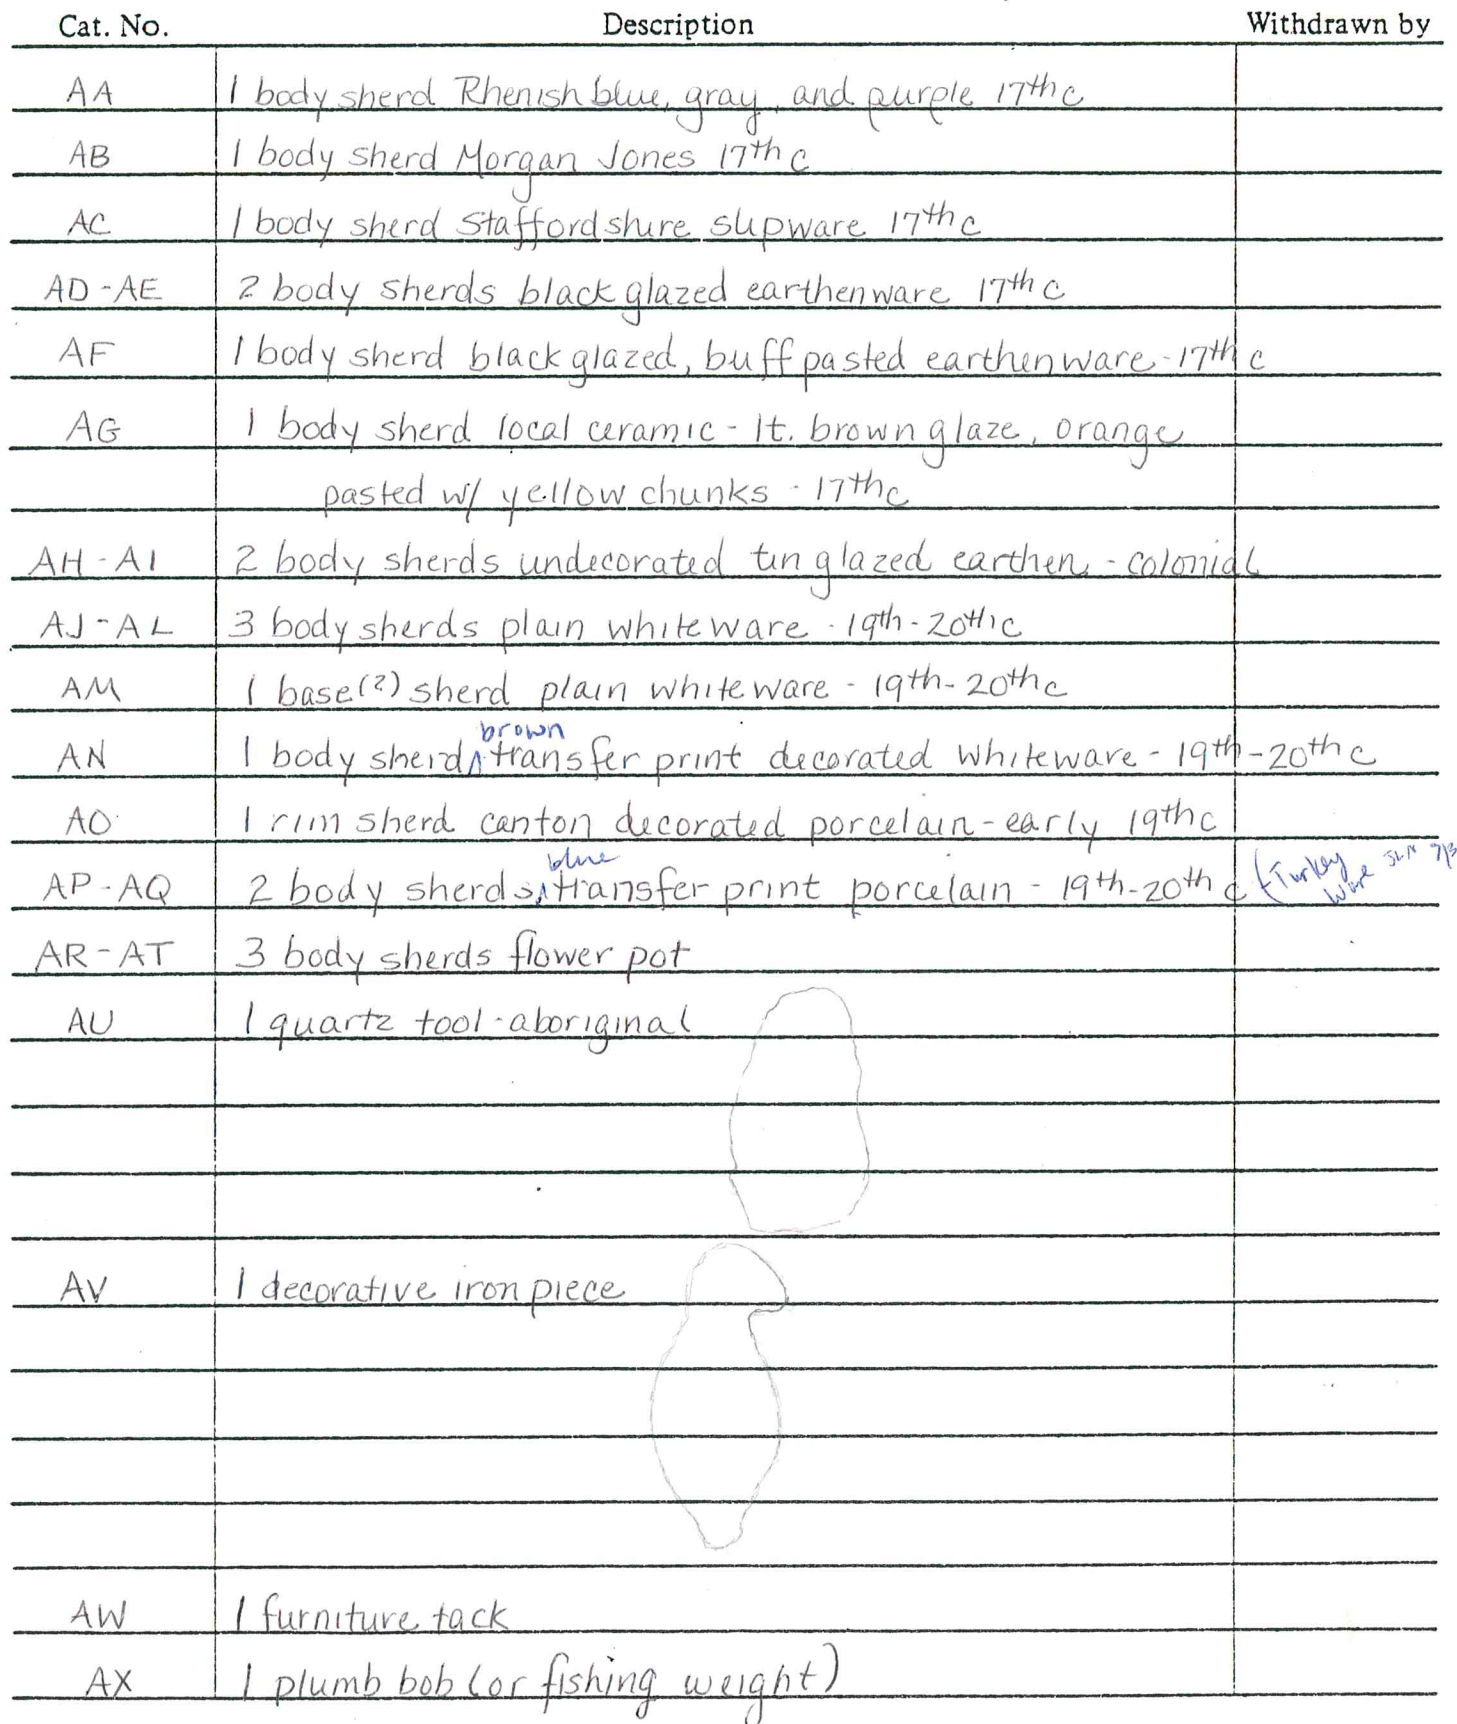 Cat. No. Description Withdrawn by
AA 1 body sherd Rhenish blue, gray, and purple 17th c
AB 1 body sherd Morgan Jones 17th c
AC 1 body sherd Staffordshire slipware 17th c
AD-AE 2 body sherds black glazed earthenware 17th c
AF 1 body sherd black glazed, buff pasted earthenware - 17th c
AG 1 body sherd local ceramic - lt. brown glaze, orange
pasted w/ yellow chunks - 17th c
AH-AI 2 body sherds undecorated tin glazed earthen. - colonial
AJ-AL 3 body sherds plain whiteware - 19th-20th c
AM 1 base(?) sherd plain whiteware - 19th-20th c
brown
AN 1 body sherd ^ transfer print decorated whiteware - 19th-20th c
AO 1 rim sherd canton decorated porcelain - early 19th c
blue
AP-AQ 2 body sherds ^ transfer print porcelain - 19th-20th c (Turkey
Ware
AR-AT 3 body sherds flower pot
AU 1 quartz tool - aboriginal
AV 1 decorative iron piece
AW 1 furniture tack
AX 1 plumb bob (or fishing weight)